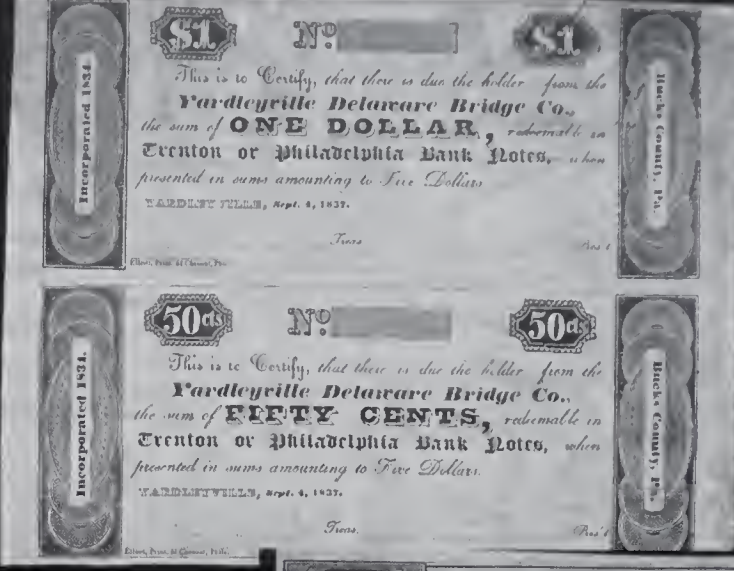 $1 No. $1
Incorporated 1834.
This is to Certify, that there is due the holder from the
Yardleyville Delaware Bridge Co.,
the sum of ONE DOLLAR, redeemable in
Trenton or Philadelphia Bank Notes, when
presented in sums amounting to Five Dollars
YARDLEYVILLE, Sept. 4, 1837.
Treas. Pres't
Bucks County, Pa.
50cts No. 50cts
Incorporated 1834.
This is to Certify, that there is due the holder from the
Yardleyville Delaware Bridge Co.,
the sum of FIFTY CENTS, redeemable in
Trenton or Philadelphia Bank Notes, when
presented in sums amounting to Five Dollars.
YARDLEYVILLE, Sept. 4, 1837.
Treas. Pres't
Bucks County, Pa.